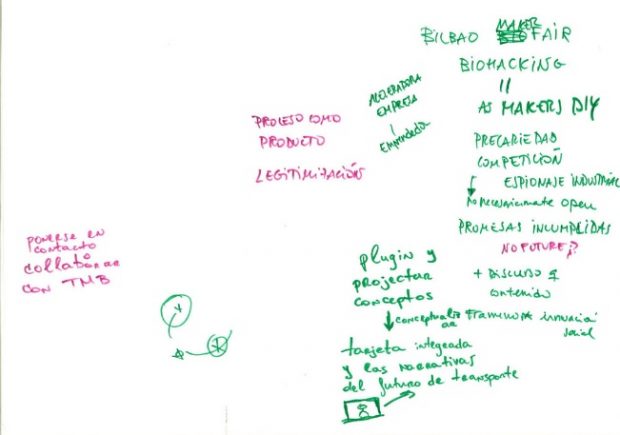 BILBAO MAKER FAIR
BIOHACKING
AS MAKERS DIY
PRECARIEDAD
COMPETICIÓN
ESPIONAJE INDUSTRIAL
no necesariamente open
PROMESAS INCUMPLIDAS
NO FUTURE?
+ DISCURSO q
contenido
ACELERADORA
EMPRESA
PROCESO COMO
PRODUCTO
LEGITIMIZACIÓN
PONERSE EN
CONTACTO
collaborar
CON TMB
plugin y
projectar
conceptos
conceptualizar
FRAMEWORK innovació
social
tarjeta integrada
y las narrativas
del futuro de transporte